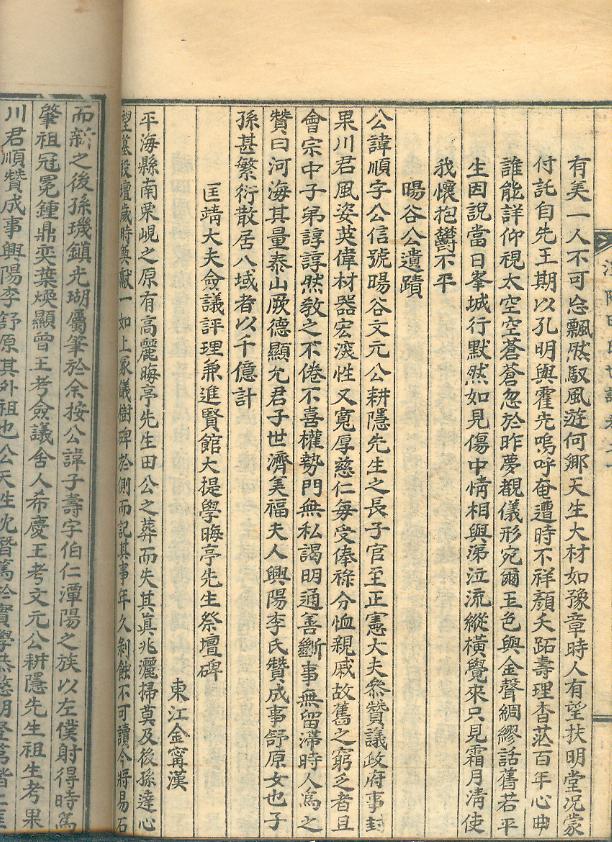 有美一人不可忘飄然馭風遊何鄉天生大材如豫章時人有望扶明堂况蒙
付託自先王期以孔明與霍光嗚呼奄遭時不祥顏夭跖壽理杳茫百年心曲
誰能詳仰視太空空蒼蒼忽於昨夢親儀形宛爾玉色與金聲綢繆話舊若平
生因說當日峯城行默然如見傷中情相與涕泣流縱橫覺來只見霜月淸使
我懷抱鬱不平
暘谷公遺蹟
公諱順字公信號暘谷文元公耕隱先生之長子官至正憲大夫叅贊議政府事封
果川君風姿英偉材器宏深性又寬厚慈仁每受俸祿分恤親戚故舊之窮乏者且
會宗中子弟諄諄然敎之不倦不喜權勢門無私謁明通善斷事無留滯時人爲之
贊曰河海其量泰山厥德顯允君子世濟美福夫人興陽李氏贊成事舒原女也子
孫甚繁衍散居八域者以千億計
匡靖大夫僉議評理兼進賢館大提學晦亭先生祭壇碑
東江金甯漢
平海縣南栗峴之原有高麗晦亭先生田公之葬而失其眞兆灑掃莫及後孫達心
望墓設壇歲時奠獻一如上冢儀樹碑於側而記其事年久剝蝕不可讀今將易石
而新之後孫璣鎭光瑚屬筆於余按公諱子壽字伯仁潭陽之族以左僕射得時爲
肇祖冠冕鍾鼎奕葉煥顯曾王考僉議舍人希慶王考文元公耕隱先生祖生考果
川君順贊成事興陽李舒原其外祖也公天生